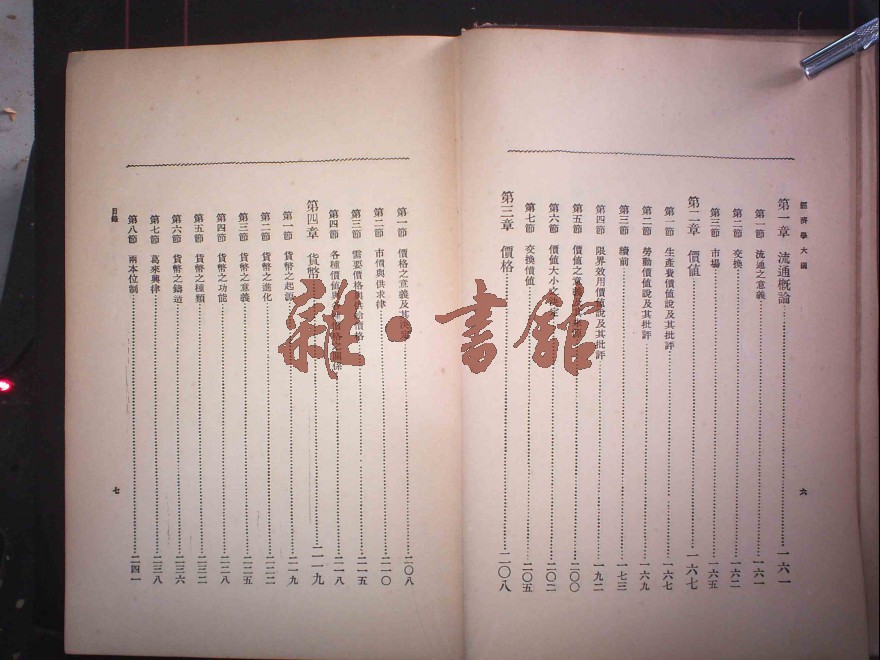 經濟學大綱
第一章 流通概論……一六一
第一節 流通之意義……一六一
第二節 交換……一六二
第三節 市場……一六五
第二章 價值……一六七
第一節 生產費價值說及其批評……一六七
第二節 勞動價值說及其批評……一六九
第三節 續前……一七三
第四節 限界效用價值說及其批評……一九二
第五節 價值之意……二〇〇
第六節 價值大小……二〇二
第七節 交換價值……二〇五
第三章 價格……二〇八
六
第一節 價格之意義及其決定……二〇八
第二節 市價與供求律……二一〇
第三節 需要價格與供給價格……二一五
第四節 各種價值與……價格之關係……二一八
第四章 貨幣……二一九
第一節 貨幣之起源……二一九
第二節 貨幣之進化……二二二
第三節 貨幣之意義……二二五
第四節 貨幣之功能……二二八
第五節 貨幣之種類……二三二
第六節 貨幣之鑄造……二三六
第七節 葛來興律……二三八
第八節 兩本位制……二四一
目錄
七
雜·書館